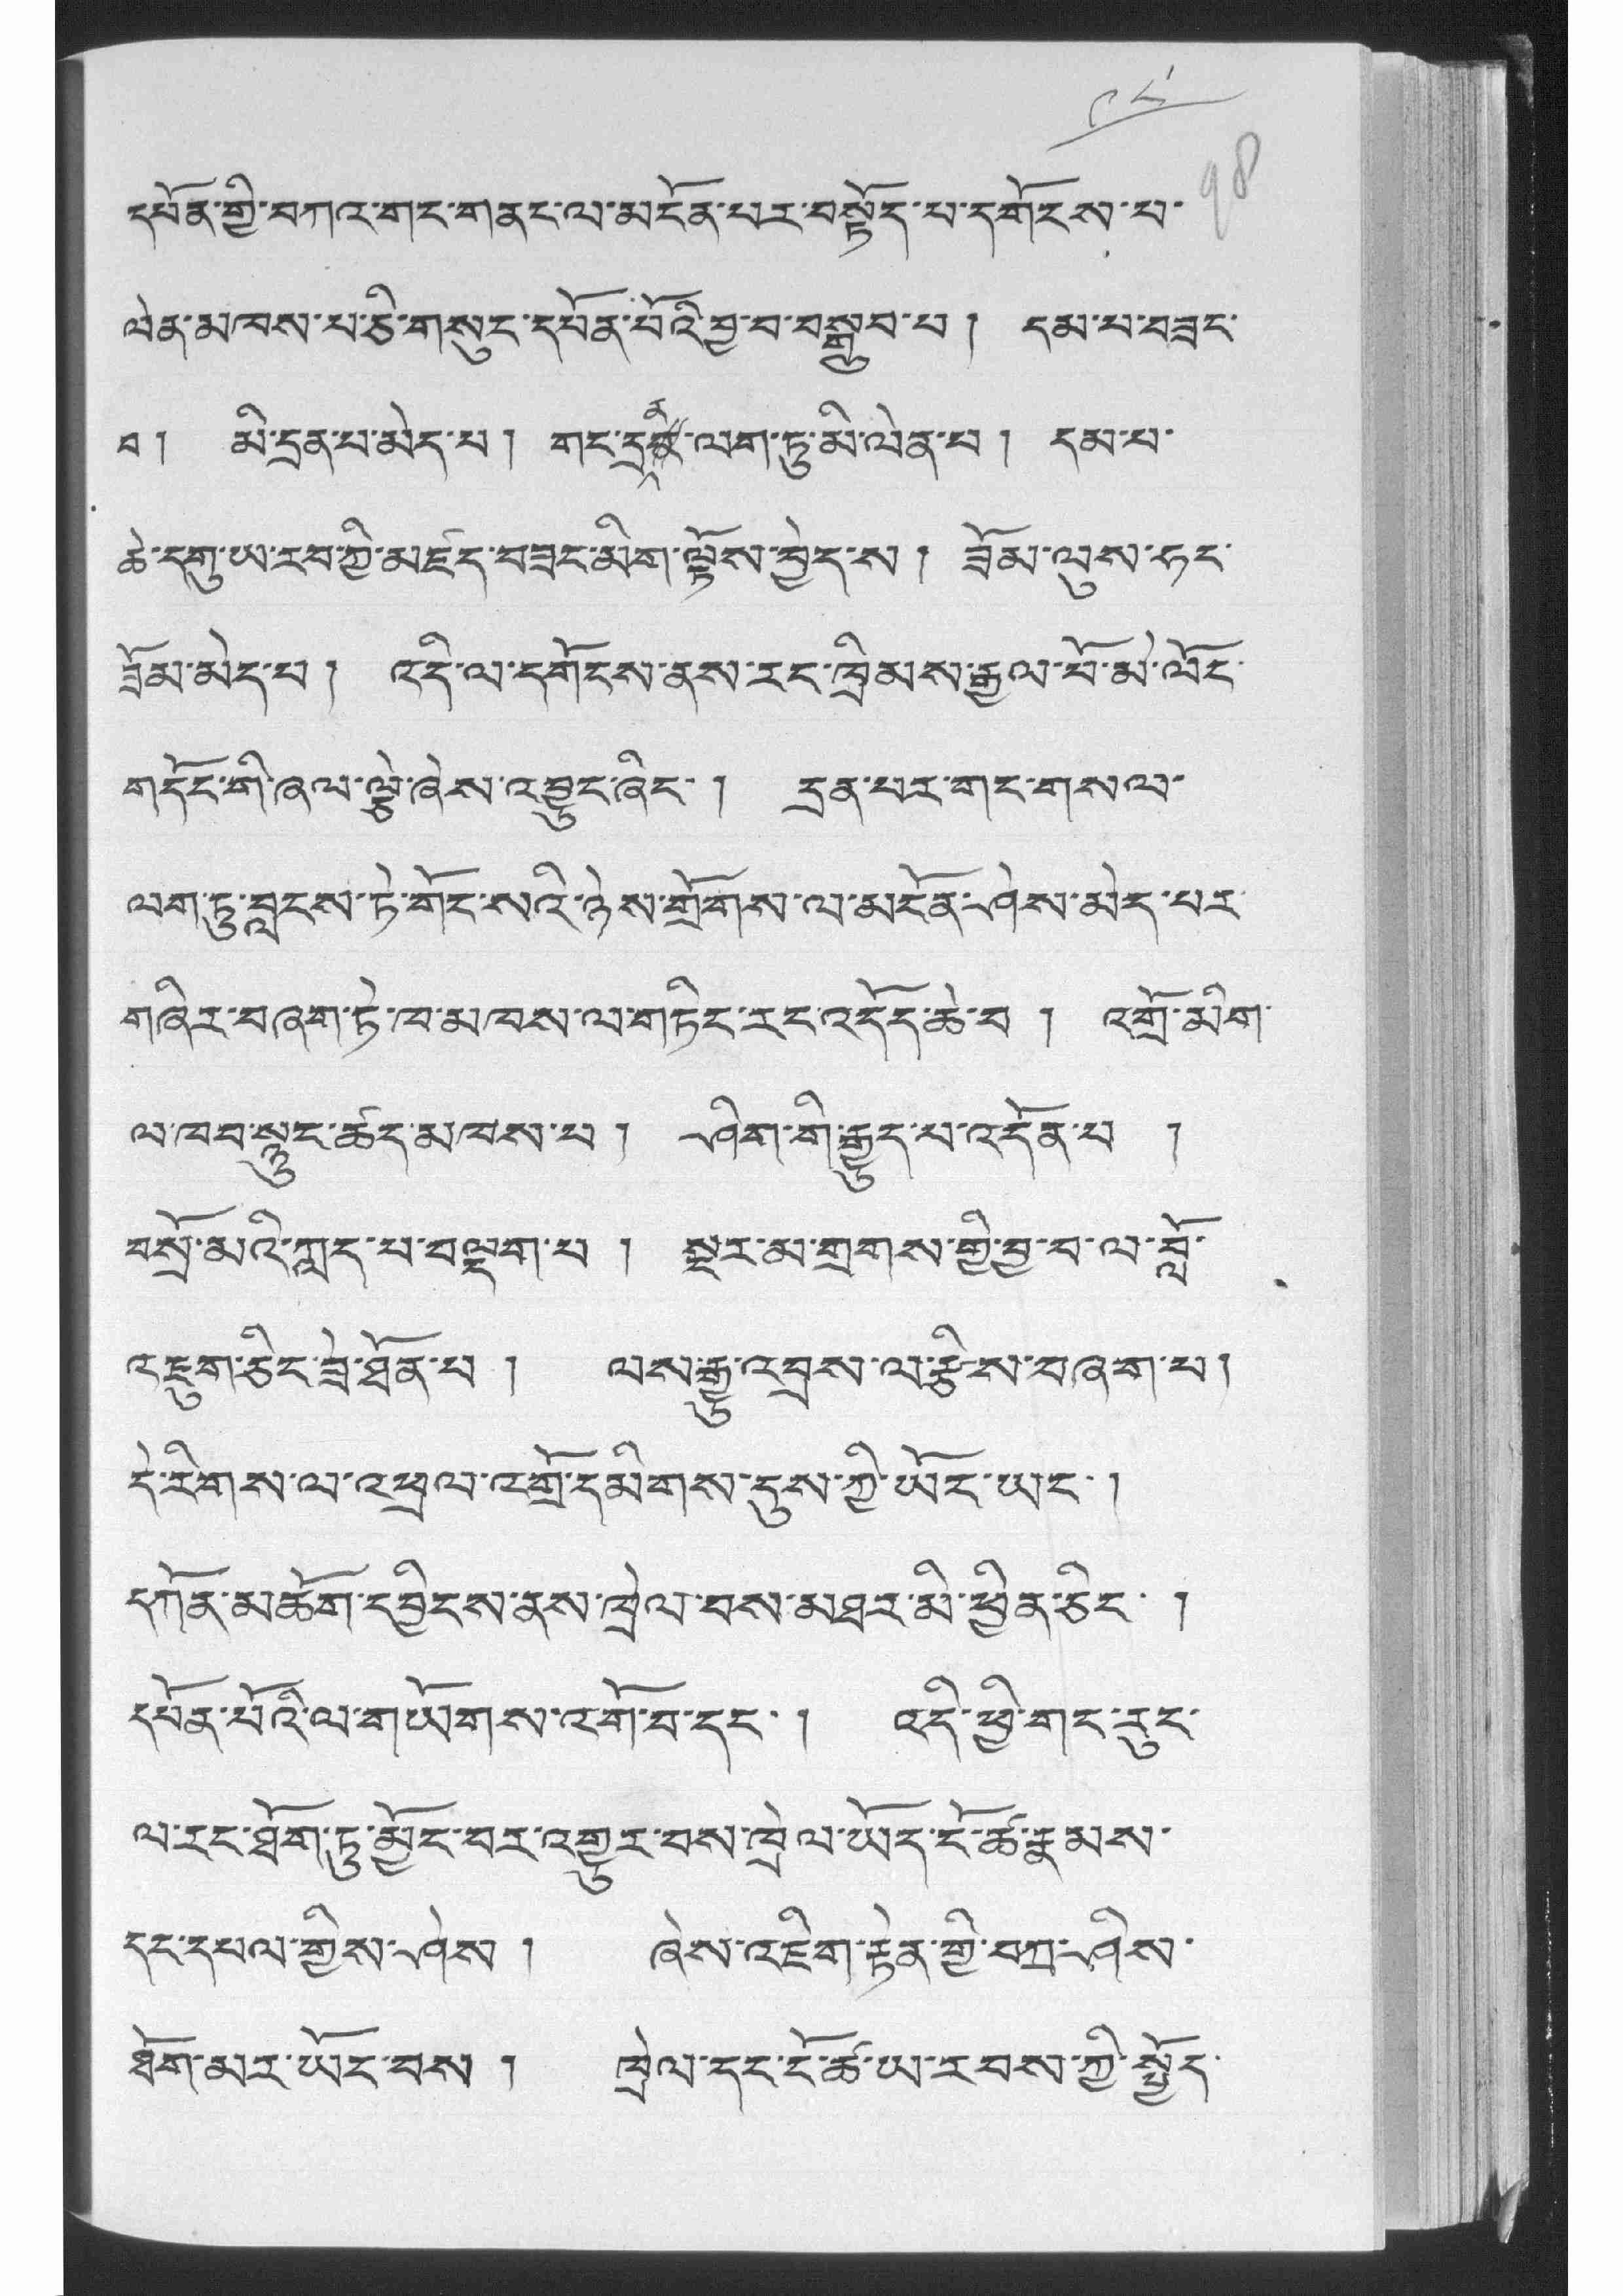 ༡༤
དཔོན་གྱི་བཀའ་གང་གནང་ལ་མངོན་པར་བསྟོད་པ་དགོངས་པ་
ལེན་མཁས་པ་ཅི་གསུང་དཔོན་པོའི་བྱ་བ་བསྒྲུབ་པ། དམ་པ་བཟང་
བ། མི་དྲན་པ་མེད་པ། གང་དྲན་ལག་ཏུ་མི་ལེན་པ། དམ་པ་
ཆེ་དགུ་ཡ་རབ་ཀྱི་མཛོད་བཟང་མིག་ལྟོས་བྱེད་ས། ཟློམ་ལུས་ཧང་
ཟློམ་མེད་པ། འདི་ལ་དགོངས་ནས་རང་ཁྲིམས་རྒྱལ་པོ་མེ་ལོང་
གདོང་གི་ཞལ་ལྕེ་ཞེས་འབྱུང་ཞིང་། དྲན་པར་གང་གསལ་
ལག་ཏུ་བླངས་ཏེ་གོང་སའི་ཉེས་གྲོགས་ལ་མངོན་ཤེས་མེད་པར་
གཞིར་བཞག་ཏེ་ཁ་མཁས་ལ་གཏིང་རང་འདོད་ཆེ་བ། འགྲོ་མིག་
ལ་ཁབ་སྟུང་ཚད་མཁས་པ། ཤིག་གི་རྒྱུད་པ་འདོན་པ །
བསྲོ་མའི་ཀླད་པ་བལྡག་པ། སྔར་མ་གྲགས་ཀྱི་བྱ་བ་ལ་བློ་
འཇུག་ཅིང་ཟེ་ཐོན་པ། ལས་རྒྱུ་འབྲས་ལ་རྩིས་བཞག་པ།
དེ་རིགས་ལ་འཕྲལ་འགྲོ་དམིགས་དུས་ཀྱི་ཡོང་ཡང་།
དཀོན་མཆོག་དབྱིངས་ནས་ཁྲེལ་བས་མཐར་མི་ཕྱིན་ཅིང་།
དཔོན་པོའི་ལ་གཡོགས་འགོ་བ་དང་། འདི་ཕྱི་གང་རུང་
ལ་རང་ཐོག་ཏུ་མྱོང་བར་འགྱུར་བས་ཁྲེལ་ཡོད་ངོ་ཚོ་རྣམས་
དང་དཔལ་གྱིས་ཤེས། ཞེས་འཇིག་རྟེན་གྱི་བཀྲ་ཤིས་
ཐོག་མར་ཡོང་བས། ཁྲེལ་དང་ངོ་ཚོ་ཡ་རབས་ཀྱི་སྤྱོད་